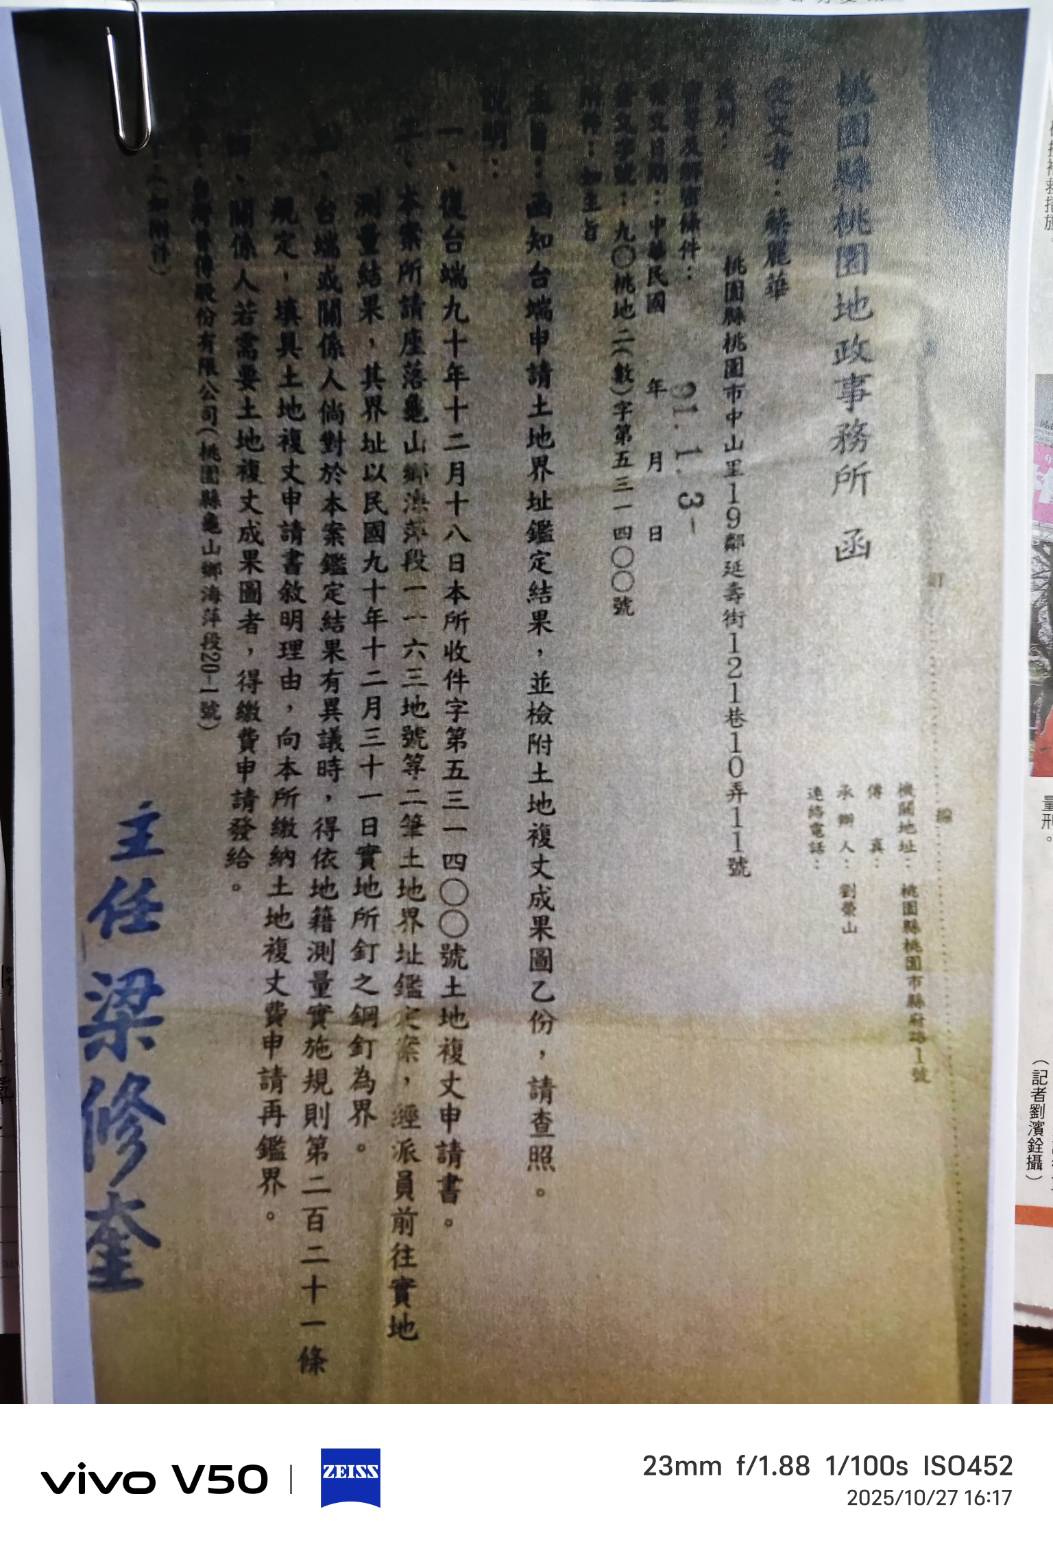 桃園縣桃園地政事務所 函
機關地址：桃園縣桃園市縣府路1號
傳 真：
承 辦 人：劉榮山
連絡電話：
受文者：蔡麗華
桃園縣桃園市中山里19鄰延壽街121巷10弄11號
速別：
密等及解密條件：
91. 1. 3-
發文日期：中華民國 年 月 日
發文字號：九〇桃地二(數)字第五三一四〇〇號
附件：如主旨
主旨：函知台端申請土地界址鑑定結果，並檢附土地複丈成果圖乙份，請查照。
說明：
一、復台端九十年十二月十八日本所收件字第五三一四〇〇號土地複丈申請書。
二、本案所請座落龜山鄉海萍段一一六三地號等二筆土地界址鑑定案，經派員前往實地
測量結果，其界址以民國九十年十二月三十一日實地所釘之鋼釘為界。
台端或關係人倘對於本案鑑定結果有異議時，得依地籍測量實施規則第二百二十一條
規定，填具土地複丈申請書敘明理由，向本所繳納土地複丈費申請再鑑界。
關係人若需要土地複丈成果圖者，得繳費申請發給。
股份有限公司(桃園縣龜山鄉海萍段20-1號)
(如附件)
主任 梁修奎
訂
線
(記者劉濱銓攝)
量刑。
vivo V50
ZEISS
23mm f/1.88 1/100s ISO452
2025/10/27 16:17